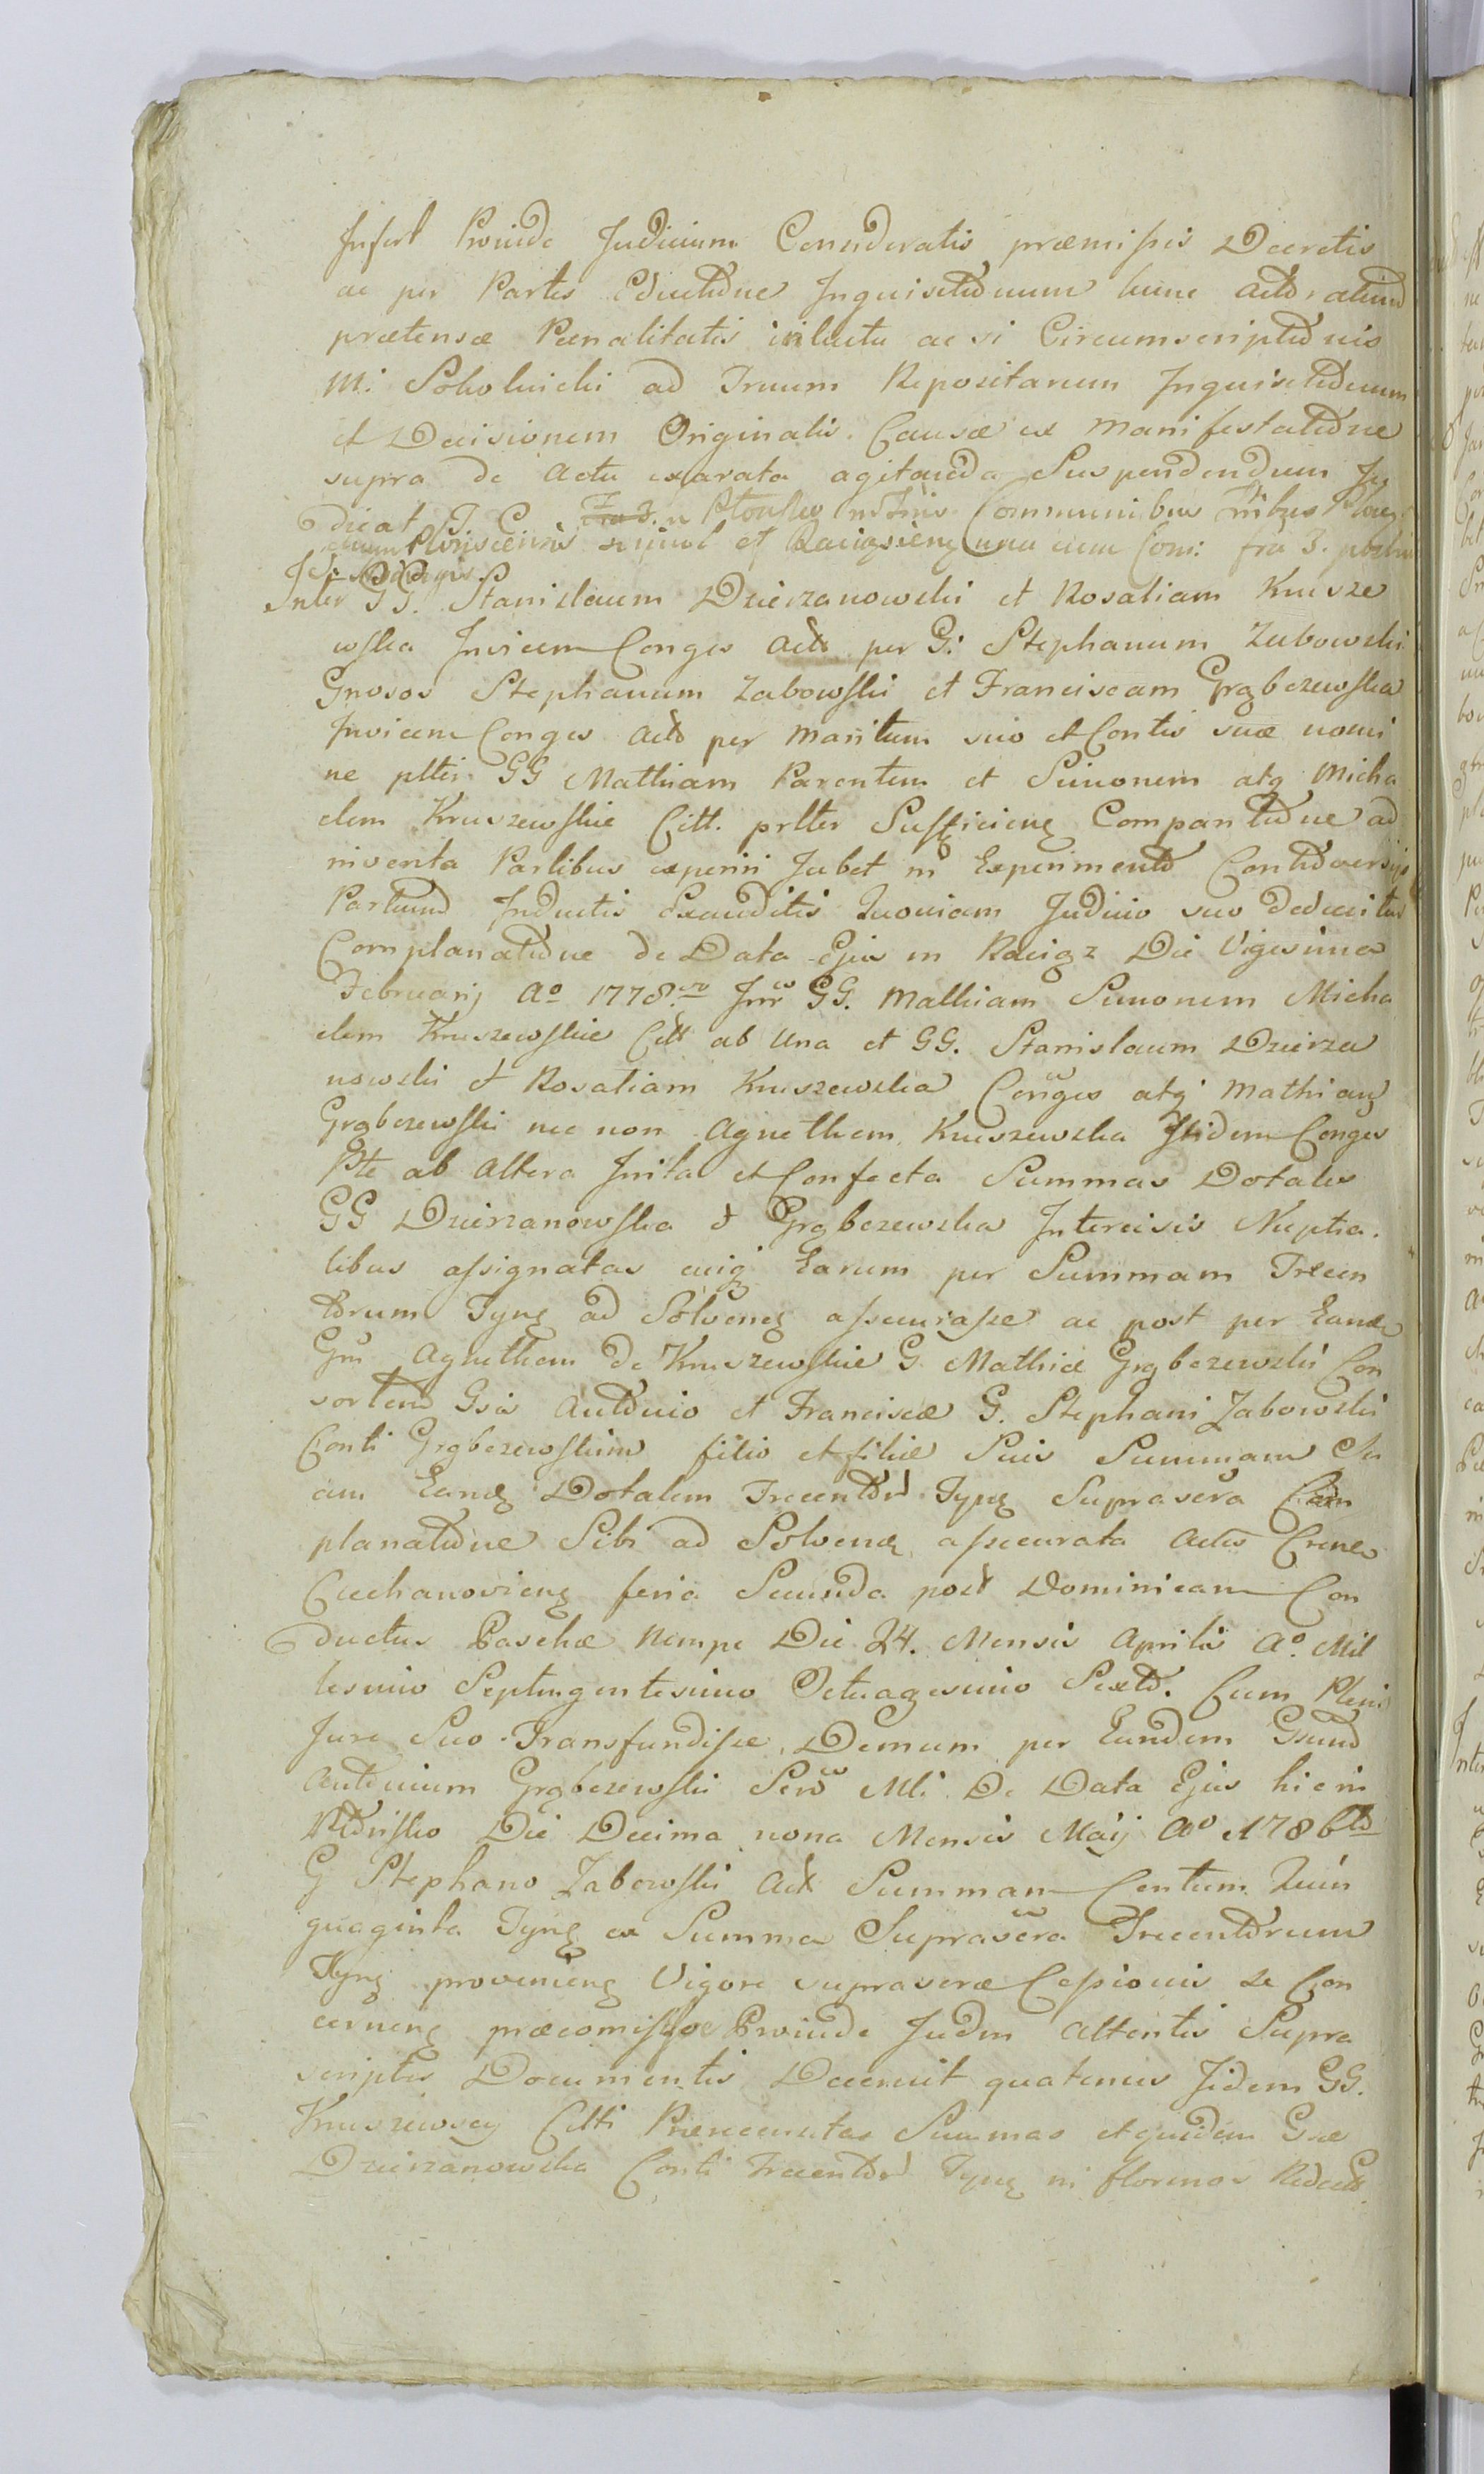 Infert Proinde Judicium Consideratis præmissis Decretis
ac per Partes Eductione Inquisitionum hinc actoratum
prætensæ Pœnalitatis intuitu ac si Circumscriptionis
M: Sokolnicki ad Trinum Repositarum Inquisitionum
et Decisionem Originalis Causæ ex Manifestatione
supra de Actu exarata agitanda Suspendendum Ju
dicat J. C. Płońsko Communibus
simul et Raciązieng una cum Com: fra 3.
Inter GG. Stanislaum Dzierzanowski et Rosaliam Krusze
wska Invicem Conges Act per G: Stephanum Zabowski
Gnosos Stephanum Zabowski et Franciscam Grąbczewska
Invicem Conges Act per Maritum suo et Contis suæ nomi
ne pltes GG Mathiam Parentem et Simonem atq Micha
elem Kruszewskie Citt. prlter Sufficieng Comparitione ad
inventa Partibus experiri Jubet in Experimento Controversijs
Partium Inductis Exauditis Quoniam Judicio suo deducitur
Complanatione de Data Ejus in Raciąz Die Vigesima
Februarij Ao 1778vo Inr GG. Mathiam Simonem Micha
elem Kruszewskie Citt ab Una et GG. Stanislaum Dzierza
nowski et Rosaliam Kruszewska Conges atq Mathiam
Grąbczewski nec non Agnethem Kruszewska Itidem Conges
Pte ab Altera Inita et Confecta Summas Dotales
GG Dzierzanowska & Grąbczewska Intercisis Nuptia.
libus assignatas cuiq Earum per Summam Trecen
torum Tyng ad Solveng assecurasse ac post per Eand
Gm Agnethem de Kruszewskie G. Mathiæ Grąbczewski Con
sortem Gsis Antonio et Franciscæ G. Stephani Zabowski
Conti Grąbczewskim filio et filiæ Suis Summam Su
am Eand Dotalem Trecentor Tyng Suprascra Com
planatione Sibi ad Solvend assecurata Actis Crens
Ciechanovieng feria Secunda post Dominicam Con
ductus Paschæ Nempe Die 24. Mensis Aprilis Ao. Mil
lesimo Septingentesimo Octuagesimo Sexto. Cum Pleno
Jure Suo Transfundisse, Demum per Eundem Gsum
Antonium Grąbczewski Scro Mli De Data Ejus hic in
Płońsko Die Decima nona Mensis Maij Ao 1786to
G Stephano Zabowski Act Summam Centum Quin
quaginta Tyng ex Summa Suprascra Trecentorum
Tyng provenieng Vigore suprascræ Cessionis se Con
cerneng præcomisse Proinde Judm Attentis Supra
scriptis Documentis Decernit quatenus Iidem GG.
Kruszewscy Citti Præreceptas Summas et quidem Gsæ
Dzierzanowska Conti Trecentor Tyng in florenos Redacto